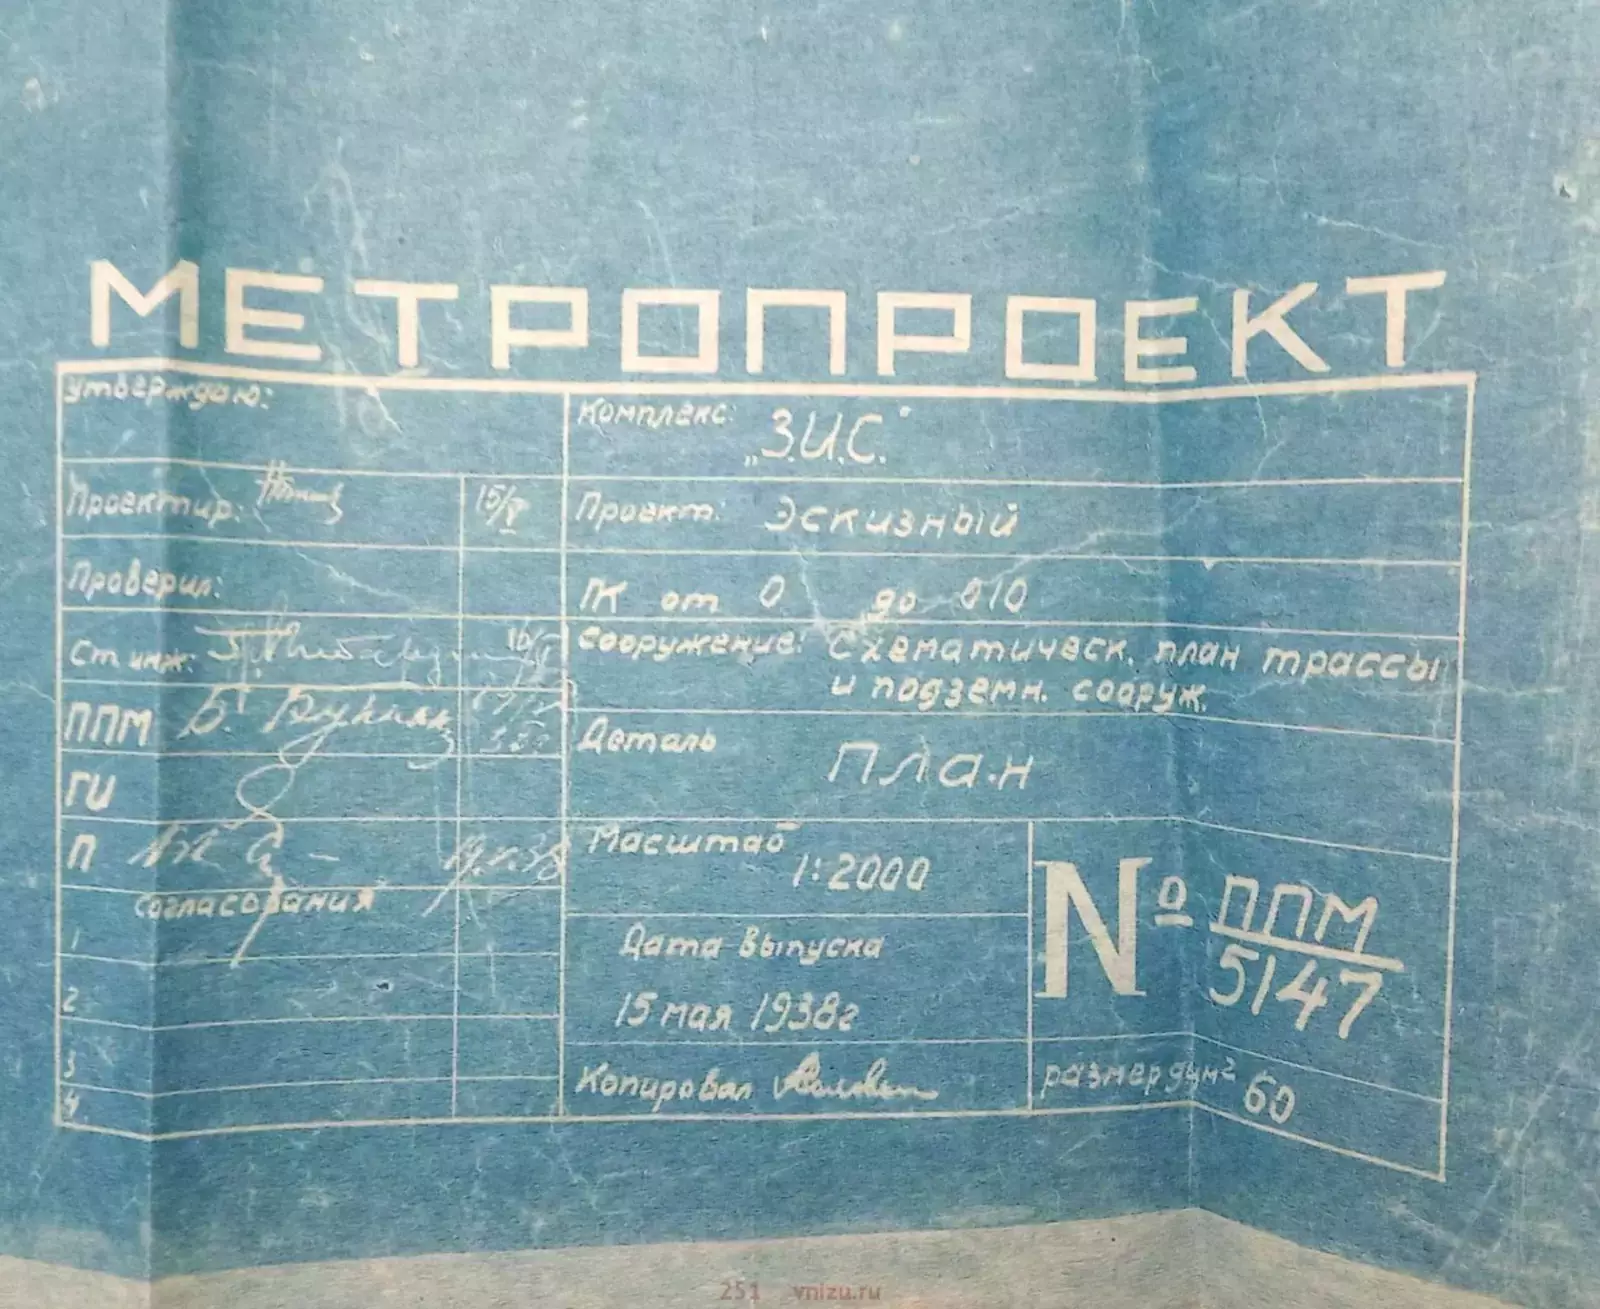 МЕТРОПРОЕКТ
Утверждаю:
Проектир: 15/V
Проверил:
Ст. инж. 16/V
ППМ Б.
ГИ
П 19.V.38
согласования
1
2
3
4.
Комплекс: „З.И.С."
Проект: Эскизный
ПК от 0 до 010
Сооружение: Схематическ. план трассы
и подземн. сооруж.
Деталь План
Масштаб 1:2000
Дата выпуска
15 мая 1938г
Копировал
№ ППМ
5147
размер дцм² 60
251 vnizu.ru